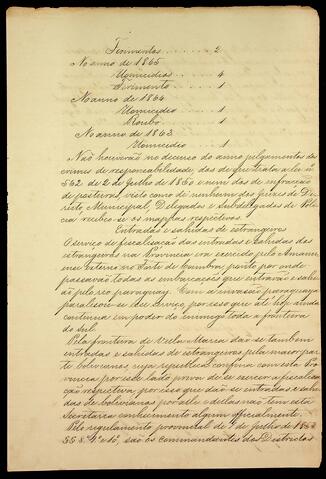 Ferimentos ........ 2
No anno de 1865
Homicidios ..... 4
Ferimento ....... 1
No anno de 1864
Homicidio ..... 1
Roubo ....... 1
No anno de 1863
Homicidio ..... 1
Não houverão no decurso do anno julgamentos dos
crimes de responsabilidade, dos de que trata a lei nº
562 de 2 de Julho de 1850 e nem dos de infracção
de posturas, visto como de nenhum dos juizes de Di-
reito Municipal, Delegados e Subdelegados de Poli-
cia recebeo se os mappas respectivos.
Entradas e sahidas de estrangeiros
O serviço de fiscalisação das entradas e sahidas dos
estrangeiros na Provincia era exercido pelo Amanu-
ense externo no Forte de Coimbra, ponto por onde
passavão todas as embarcações que entravão e sahi-
ão pelo rio paraguay. Com a invasão paraguaya
paralisou-se esse serviço, por isso que até hoje ainda
continua em poder do enemigo toda a fronteira
do Sul.
Pela fronteira de Villa Maria dão se tambem
entradas e sahidas de estrangeiros, pela maior par-
te bolivianos cuja republica confina com esta Pro-
vincia por esse lado
respectiva, por isso que dão se entradas e sahi-
das de bolivianos por alli e dellas não tem esta
Secretaria conhecimento algum officialmente.
Pelo regulamento provincial de de Julho de
são os commandantes dos Districtos